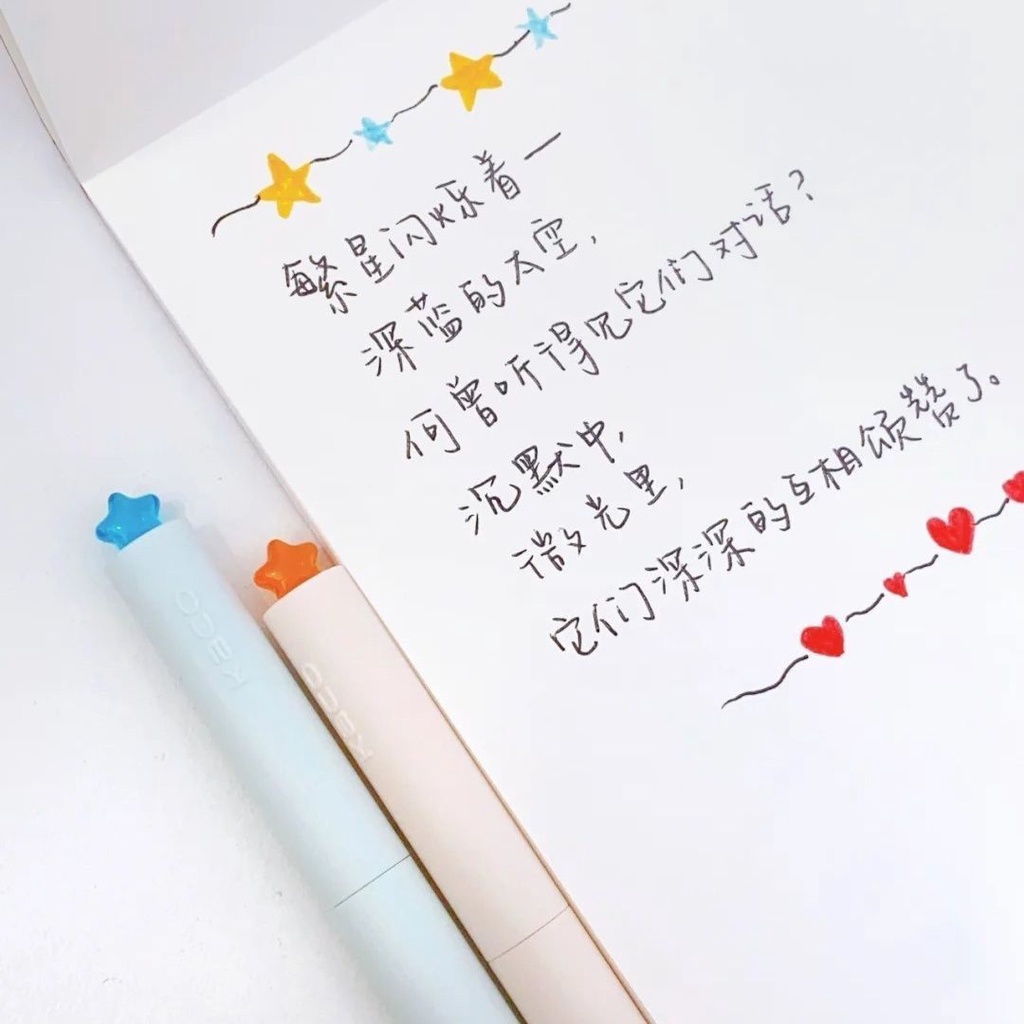 繁星闪烁着一
深蓝的太空，
何曾听得见它们对话？
沉默中，
微光里，
它们深深的互相颂赞了。
KACO
KACO